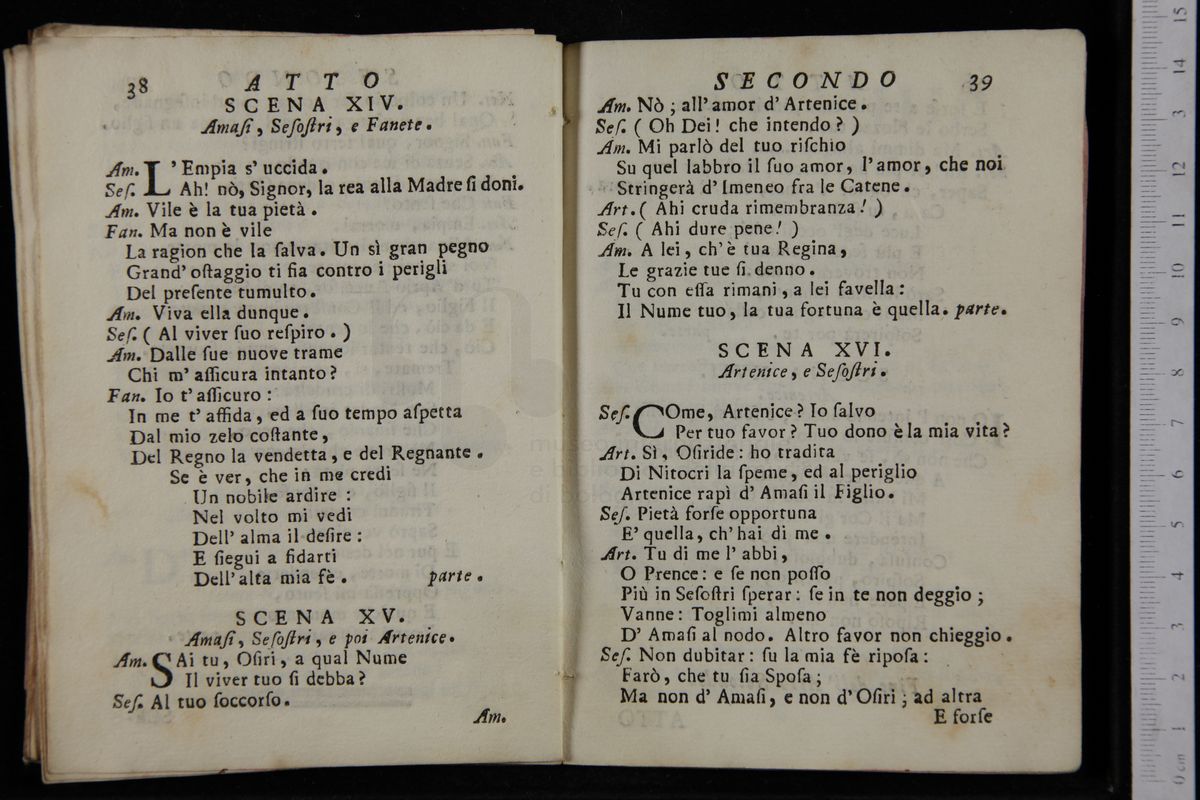 38
ATTO
SCENA XIV.
Amaſi, Seſoſtri, e Fanete.
Am. L'Empia s'uccida.
Seſ. Ah! nò, Signor, la rea alla Madre ſi doni.
Am. Vile è la tua pietà.
Fan. Ma non è vile
La ragion che la ſalva. Un sì gran pegno
Grand' oſtaggio ti ſia contro i perigli
Del preſente tumulto.
Am. Viva ella dunque.
Seſ. ( Al viver ſuo reſpiro. )
Am. Dalle ſue nuove trame
Chi m' aſſicura intanto?
Fan. Io t' aſſicuro:
In me t' affida, ed a ſuo tempo aſpetta
Dal mio zelo coſtante,
Del Regno la vendetta, e del Regnante.
Se è ver, che in me credi
Un nobile ardire:
Nel volto mi vedi
Dell' alma il deſire:
E ſiegui a fidarti
Dell' alta mia fè. parte.
SCENA XV.
Amaſi, Seſoſtri, e poi Artenice.
Am. SAi tu, Oſiri, a qual Nume
Il viver tuo ſi debba?
Seſ. Al tuo ſoccorſo.
Am.
SECONDO
39
Am. Nò; all' amor d' Artenice.
Seſ. ( Oh Dei! che intendo? )
Am. Mi parlò del tuo riſchio
Su quel labbro il ſuo amor, l'amor, che noi
Stringerà d' Imeneo fra le Catene.
Art. ( Ahi cruda rimembranza! )
Seſ. ( Ahi dure pene! )
Am. A lei, ch' è tua Regina,
Le grazie tue ſi denno.
Tu con eſſa rimani, a lei favella:
Il Nume tuo, la tua fortuna è quella. parte.
SCENA XVI.
Artenice, e Seſoſtri.
Seſ. COme, Artenice? Io ſalvo
Per tuo favor? Tuo dono è la mia vita?
Art. Sì, Oſiride: ho tradita
Di Nitocri la ſpeme, ed al periglio
Artenice rapì d' Amaſi il Figlio.
Seſ. Pietà forſe opportuna
E' quella, ch' hai di me.
Art. Tu di me l' abbi,
O Prence: e ſe non poſſo
Più in Seſoſtri ſperar: ſe in te non deggio;
Vanne: Toglimi almeno
D' Amaſi al nodo. Altro favor non chieggio.
Seſ. Non dubitar: ſu la mia fè ripoſa:
Farò, che tu ſia Spoſa;
Ma non d' Amaſi, e non d' Oſiri; ad altra
E forſe